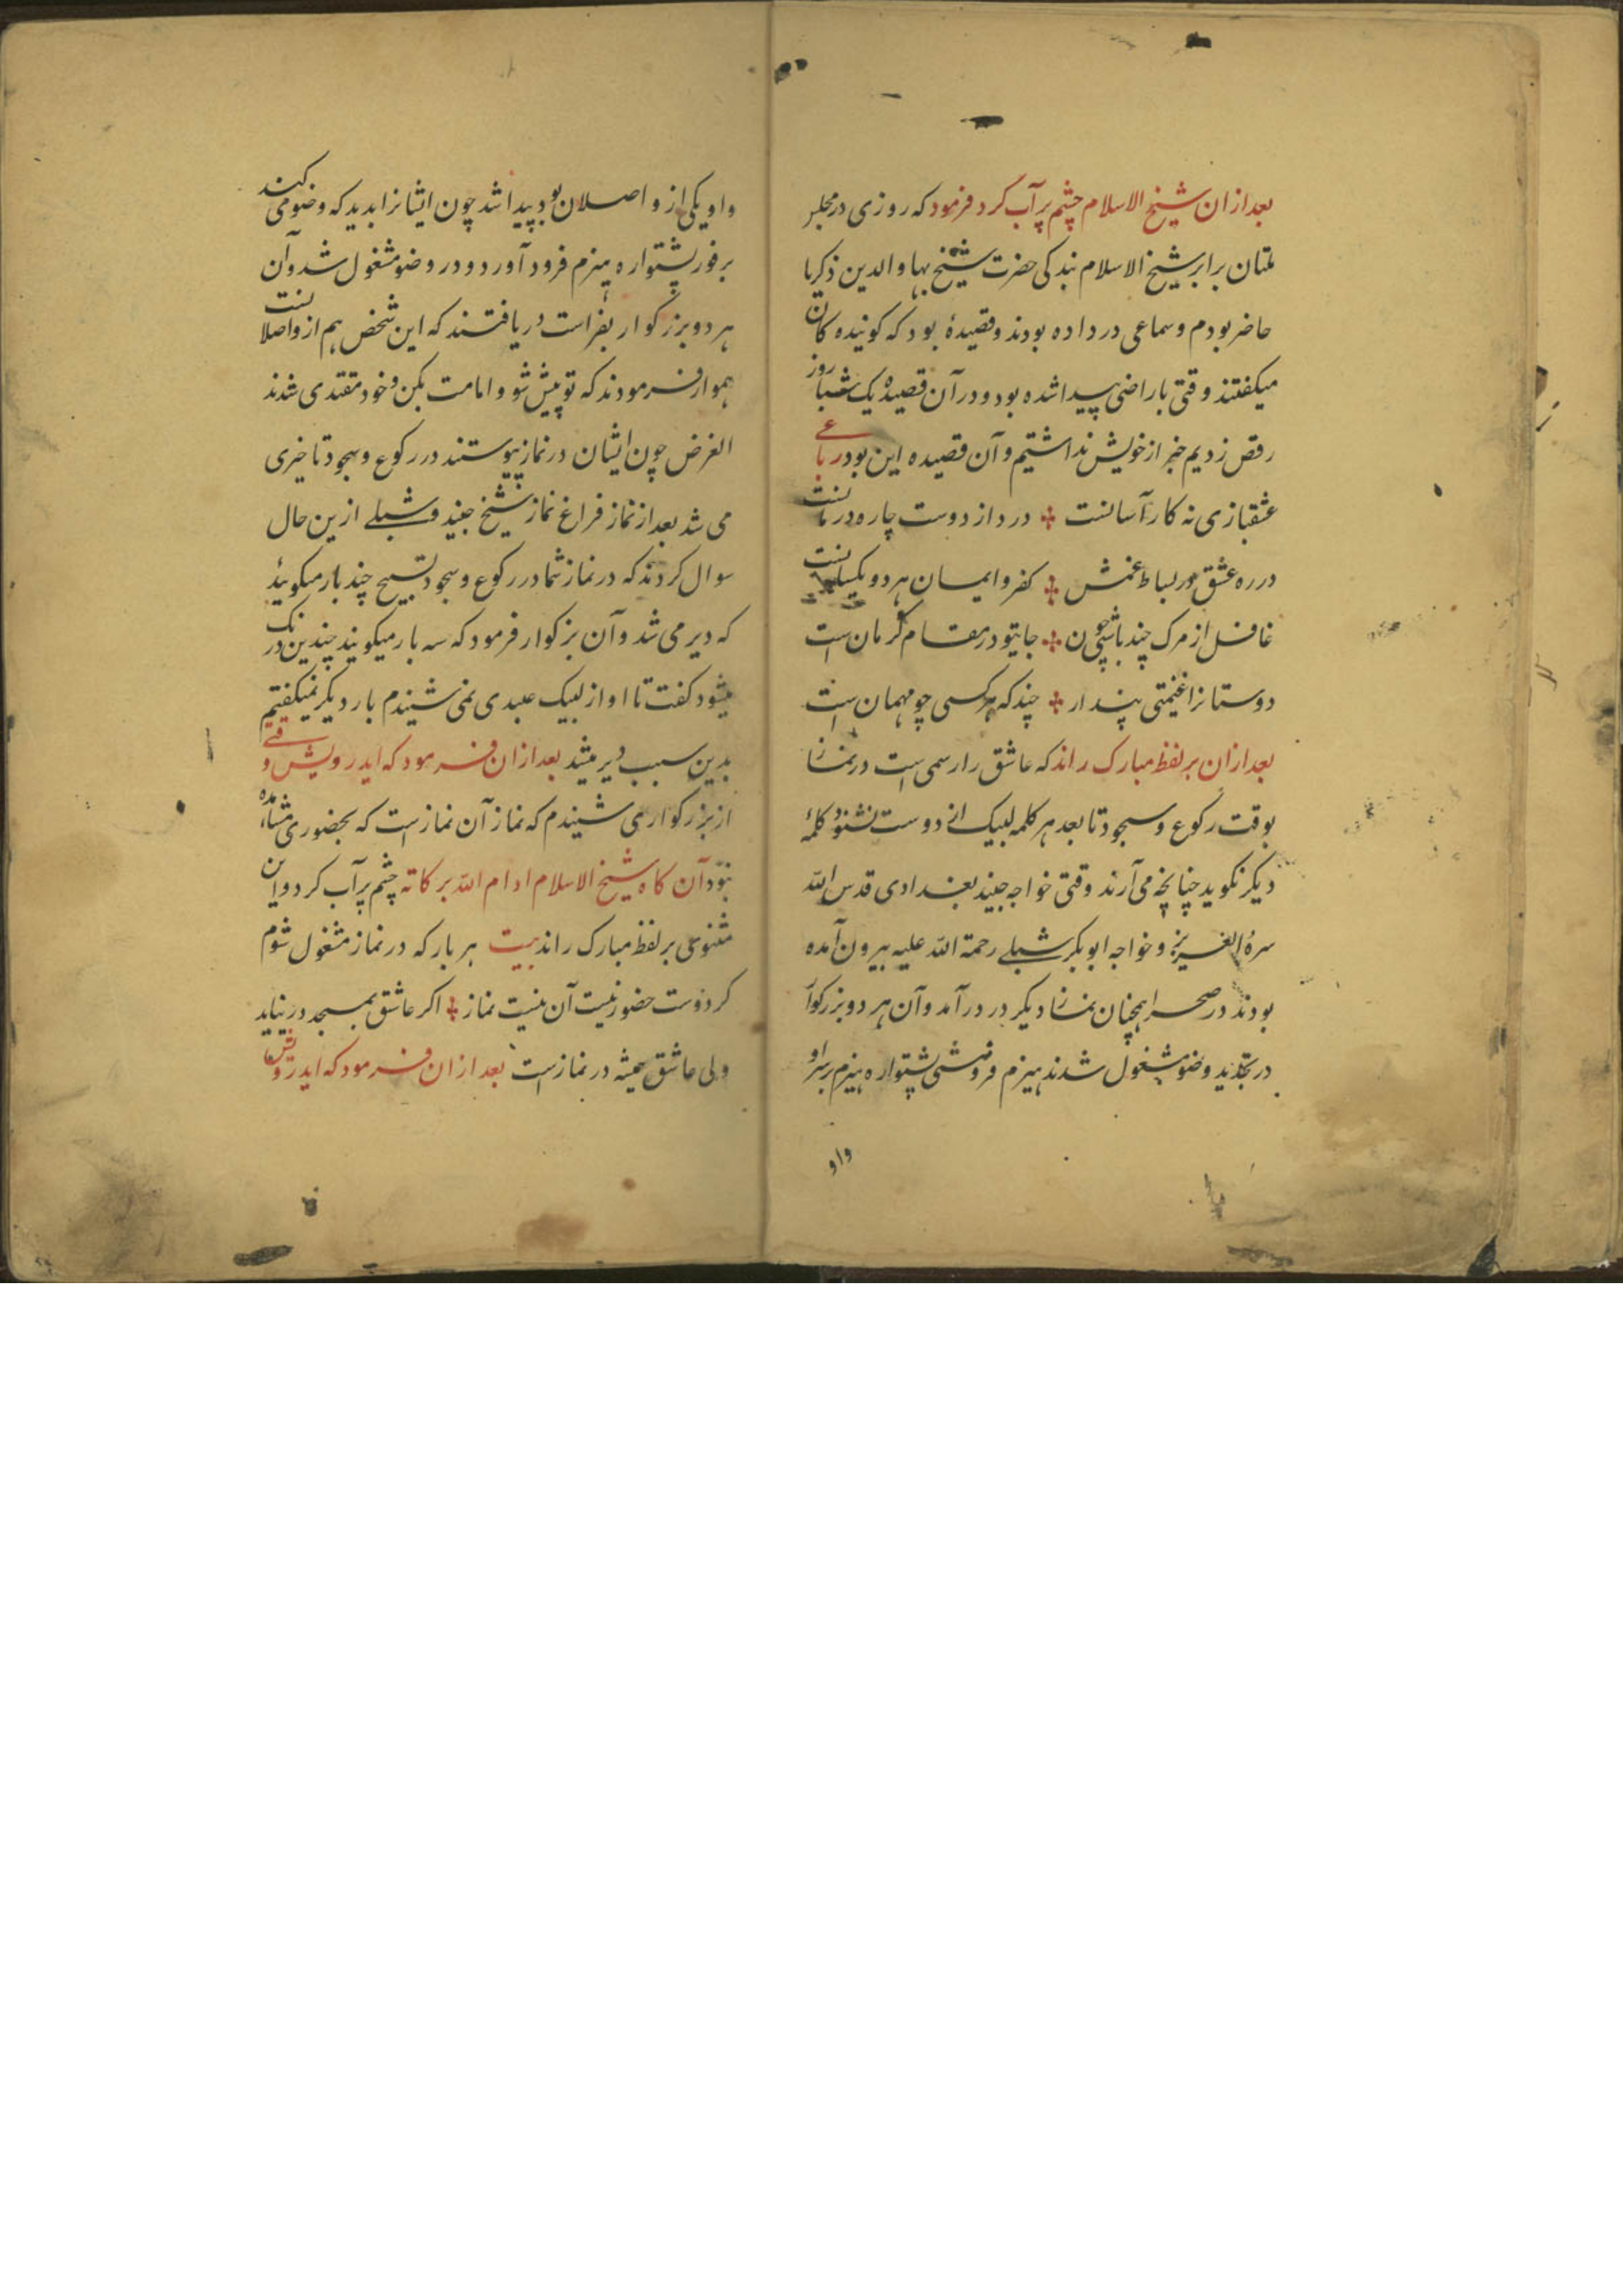 بعد ازان شیخ الاسلام چشم پر آب کرد فرمود که روزی در مجلس
ملتان برابر شیخ الاسلام بندکی حضرت شیخ بهاو الدین ذکریا
حاضر بودم و سماعی در داده بودند و قصیدهٔ بود که کوینده کان
میکفتند وقتی باراضی پیدا شده بود و در آن قصیده یک شبا روز
رقص زدیم خبر از خویش نداشتیم و آن قصیده این بود رباعے
عشقبازی نه کار آسانست درد از دوست چاره درمانست
در ره عشق در بساط غمش کفر و ایمان هر دو یکسانست
غافل از مرک چند باشی چون جایتو در مقام کرمان است
دوستانرا غنیمتی پندار چند که هر کسی چو مهمان است
بعد ازان بر لفظ مبارک راند که عاشق را رسمی است در نماز
بوقت رکوع و سجود تا بعد هر کلمه لبیک از دوست نشنود کلمهٔ
دیکر نکوید چنانچه می آرند وقتی خواجه جنید بغدادی قدس الله
سره العزیز و خواجه ابوبکر شبلے رحمة الله علیه بیرون آمده
بودند در صحرا همچنان نماز دیکر در در آمد و آن هر دو بزرکوار
در تجدید وضو مشغول شدند هیزم فروشی پشتواره هیزم بر سر او
واو
واو یکی از واصلان بود پیدا شد چون ایشانرا بدید که وضو می کنند
بر فور پشتواره هیزم فرود آورد و در وضو مشغول شد و آن
هر دو بزرکوار بفراست دریافتند که این شخص هم از واصلانست
هموار فرمودند که تو پیش شو و امامت بکن و خود مقتدی شدند
الغرض چون ایشان در نماز پیوستند در رکوع و سجود تاخیری
می شد بعد از نماز فراغ نماز شیخ جنید و شبلے ازین حال
سوال کردند که در نماز شما در رکوع و سجود تسبیح چند بار میکوئید
که دیر می شد و آن بزکوار فرمود که سه بار میکویند چندین درنک
میشود کفت تا اواز لبیک عبدی نمی شنیدم بار دیکر نمیکفتیم
بدین سبب دیر میشد بعد ازان فرمود که ایدرویش وقتے
از بزرکوار می شنیدم که نماز آن نماز است که بحضوری مشاهده
بود آن کاه شیخ الاسلام ادام الله برکاته چشم پر آب کرد و این
مثنوی بر لفظ مبارک راند بیت هر بار که در نماز مشغول شوم
کر دوست حضور نیست آن نیست نماز اکر عاشق بمسجد در نیاید
ولی عاشق همیشه در نماز است بعد ازان فرمود که ایدرویش